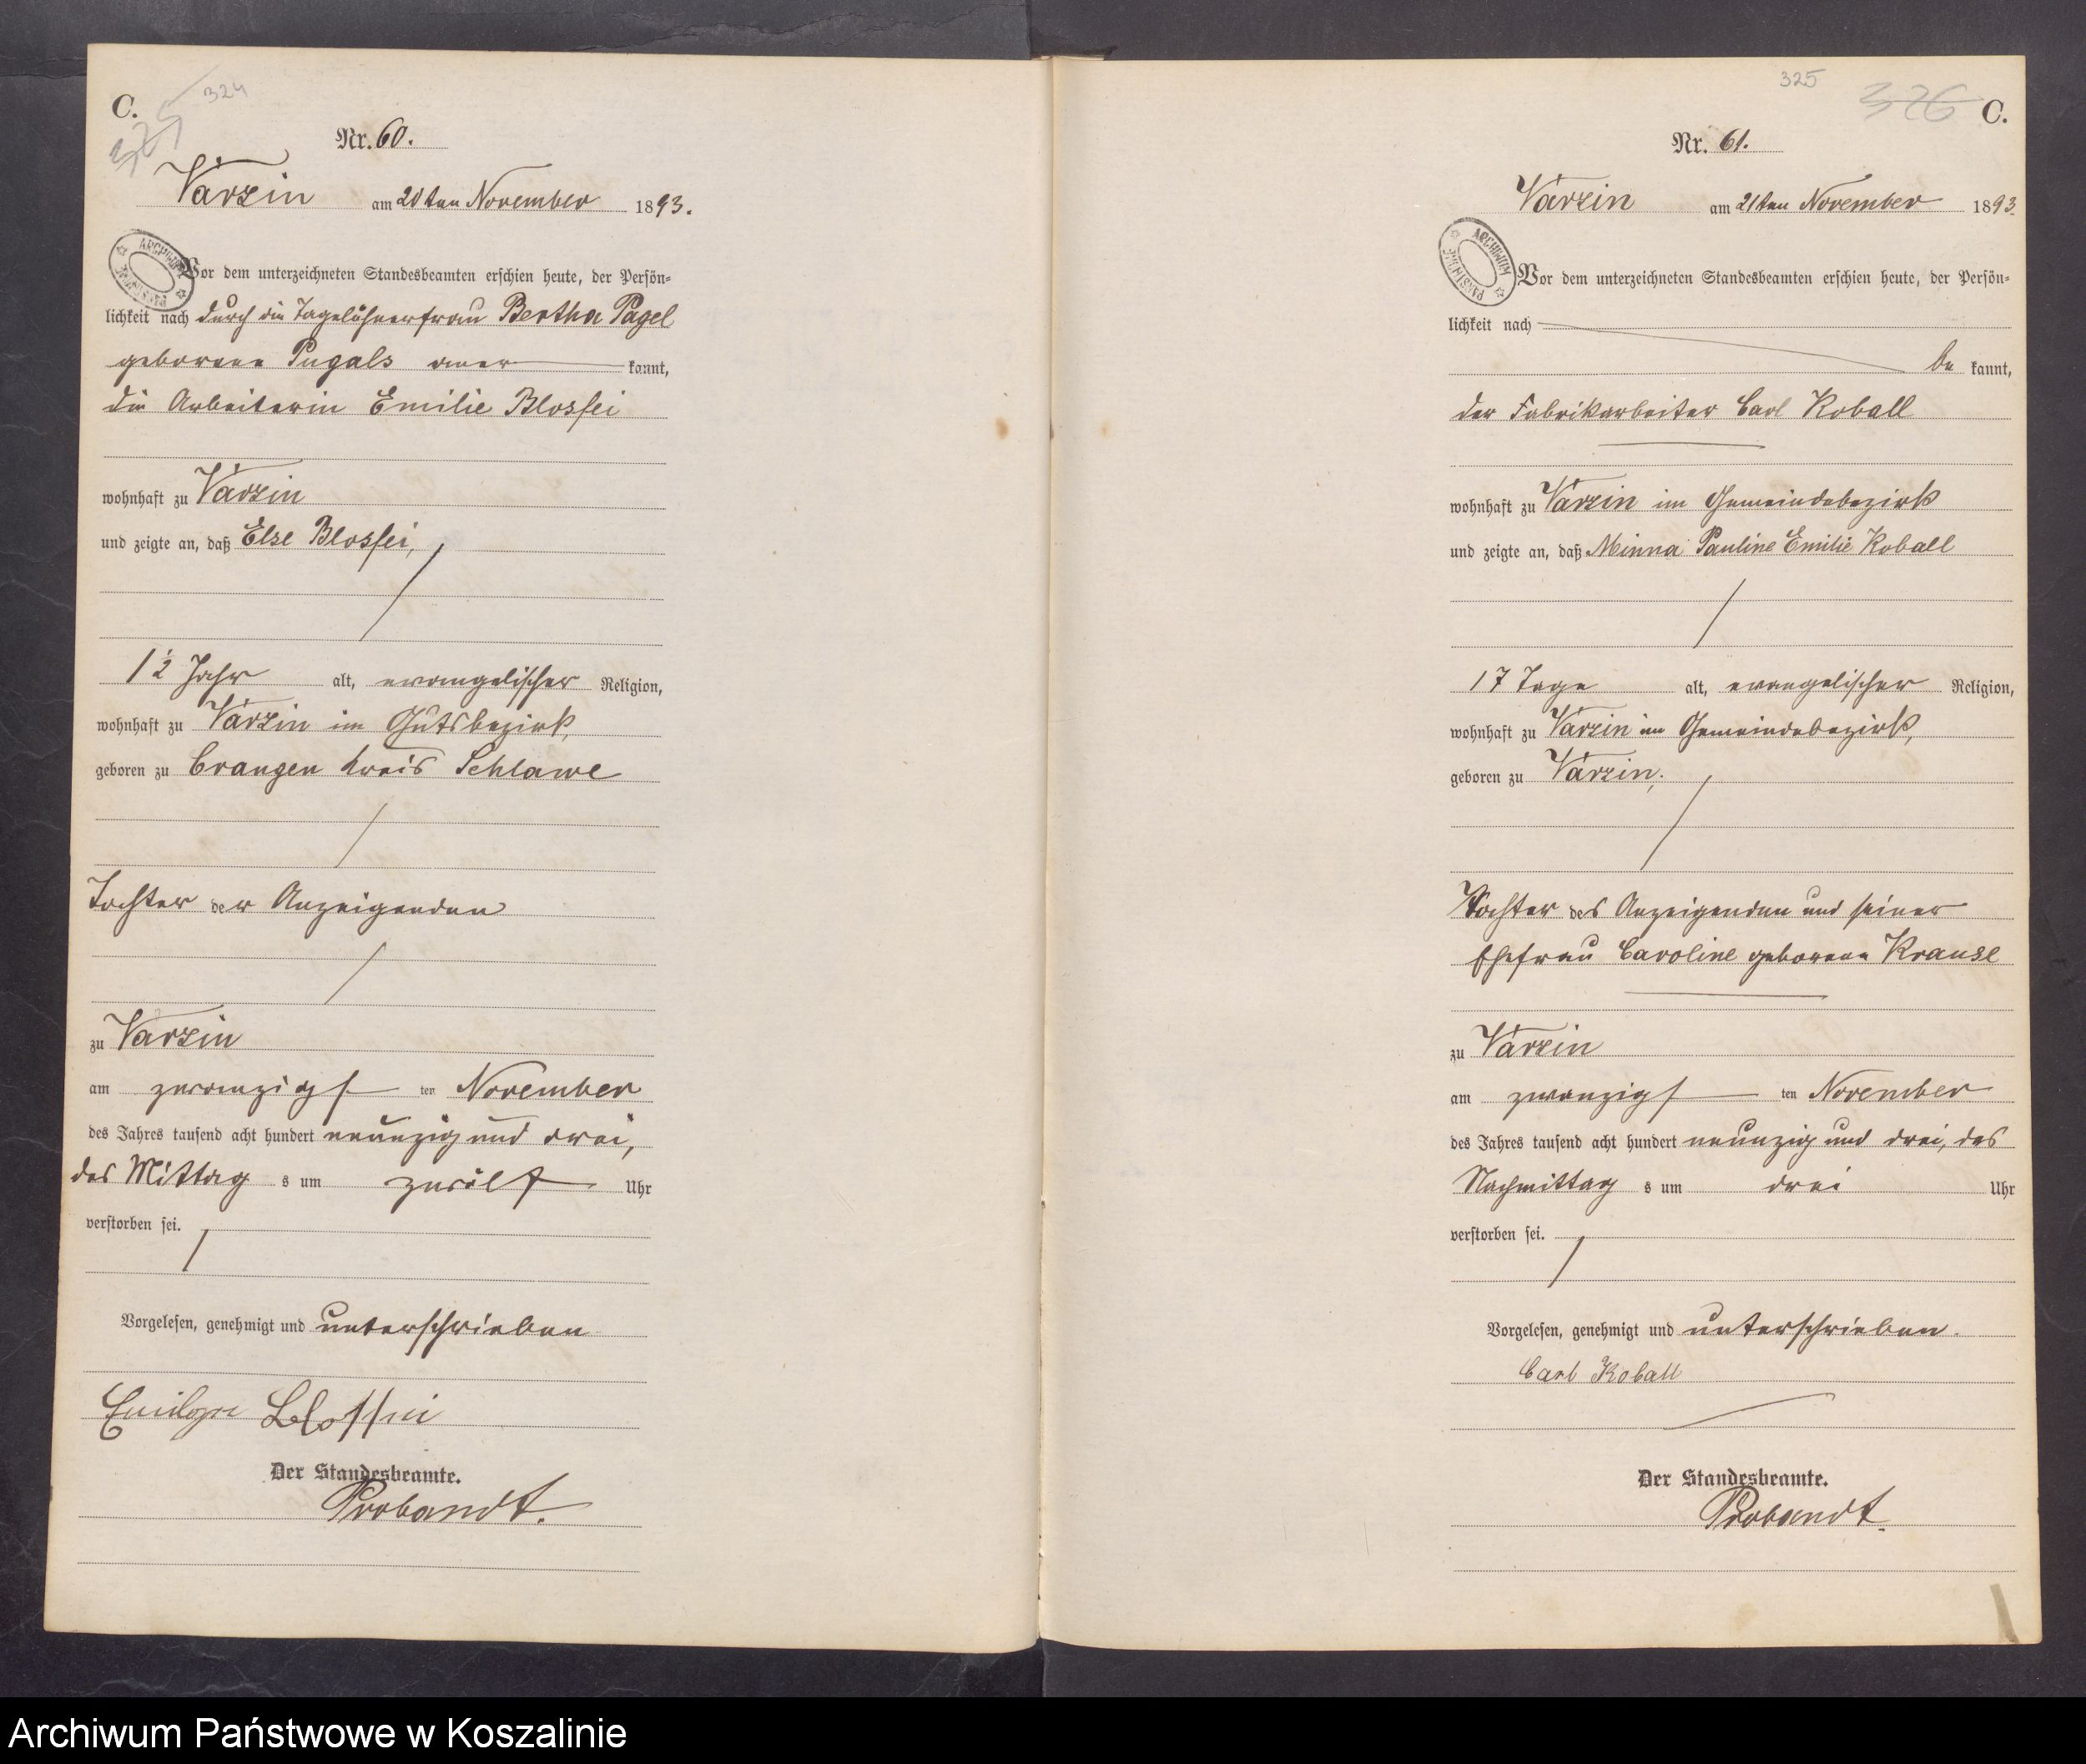 C.
324
325
Nr. 60.
Varzin am 20ten November 1893.
ARCHIWUM PAŃSTWOWE
Vor dem unterzeichneten Standesbeamten erschien heute, der Persön-
lichkeit nach durch die Tagelöhnerfrau Bertha Pagel
geborene Pugals aner kannt,
die Arbeiterin Emilie Blossei
wohnhaft zu Varzin
und zeigte an, daß Else Blossei,
1½ Jahr alt, evangelischer Religion,
wohnhaft zu Varzin im Gutsbezirk,
geboren zu Crangen Kreis Schlawe
Tochter der Anzeigenden
zu Varzin
am zwanzigs ten November
des Jahres tausend acht hundert neunzig und drei,
des Mittag s um zwölf Uhr
verstorben sei.
Vorgelesen, genehmigt und unterschrieben
Blossei
Der Standesbeamte.
Probandt.
325
326
C.
Nr. 61.
Varzin am 21ten November 1893.
ARCHIWUM PAŃSTWOWE
Vor dem unterzeichneten Standesbeamten erschien heute, der Persön-
lichkeit nach
be kannt,
der Fabrikarbeiter Carl Koball
wohnhaft zu Varzin im Gemeindebezirk
und zeigte an, daß Minna Pauline Emilie Koball
17 Tage alt, evangelischer Religion,
wohnhaft zu Varzin im Gemeindebezirk,
geboren zu Varzin,
Tochter des Anzeigenden und seiner
Ehefrau Caroline geborene Krause
zu Varzin
am zwanzigs ten November
des Jahres tausend acht hundert neunzig und drei, des
Nachmittag s um drei Uhr
verstorben sei.
Vorgelesen, genehmigt und unterschrieben.
Carl Koball
Der Standesbeamte.
Probandt.
Archiwum Państwowe w Koszalinie